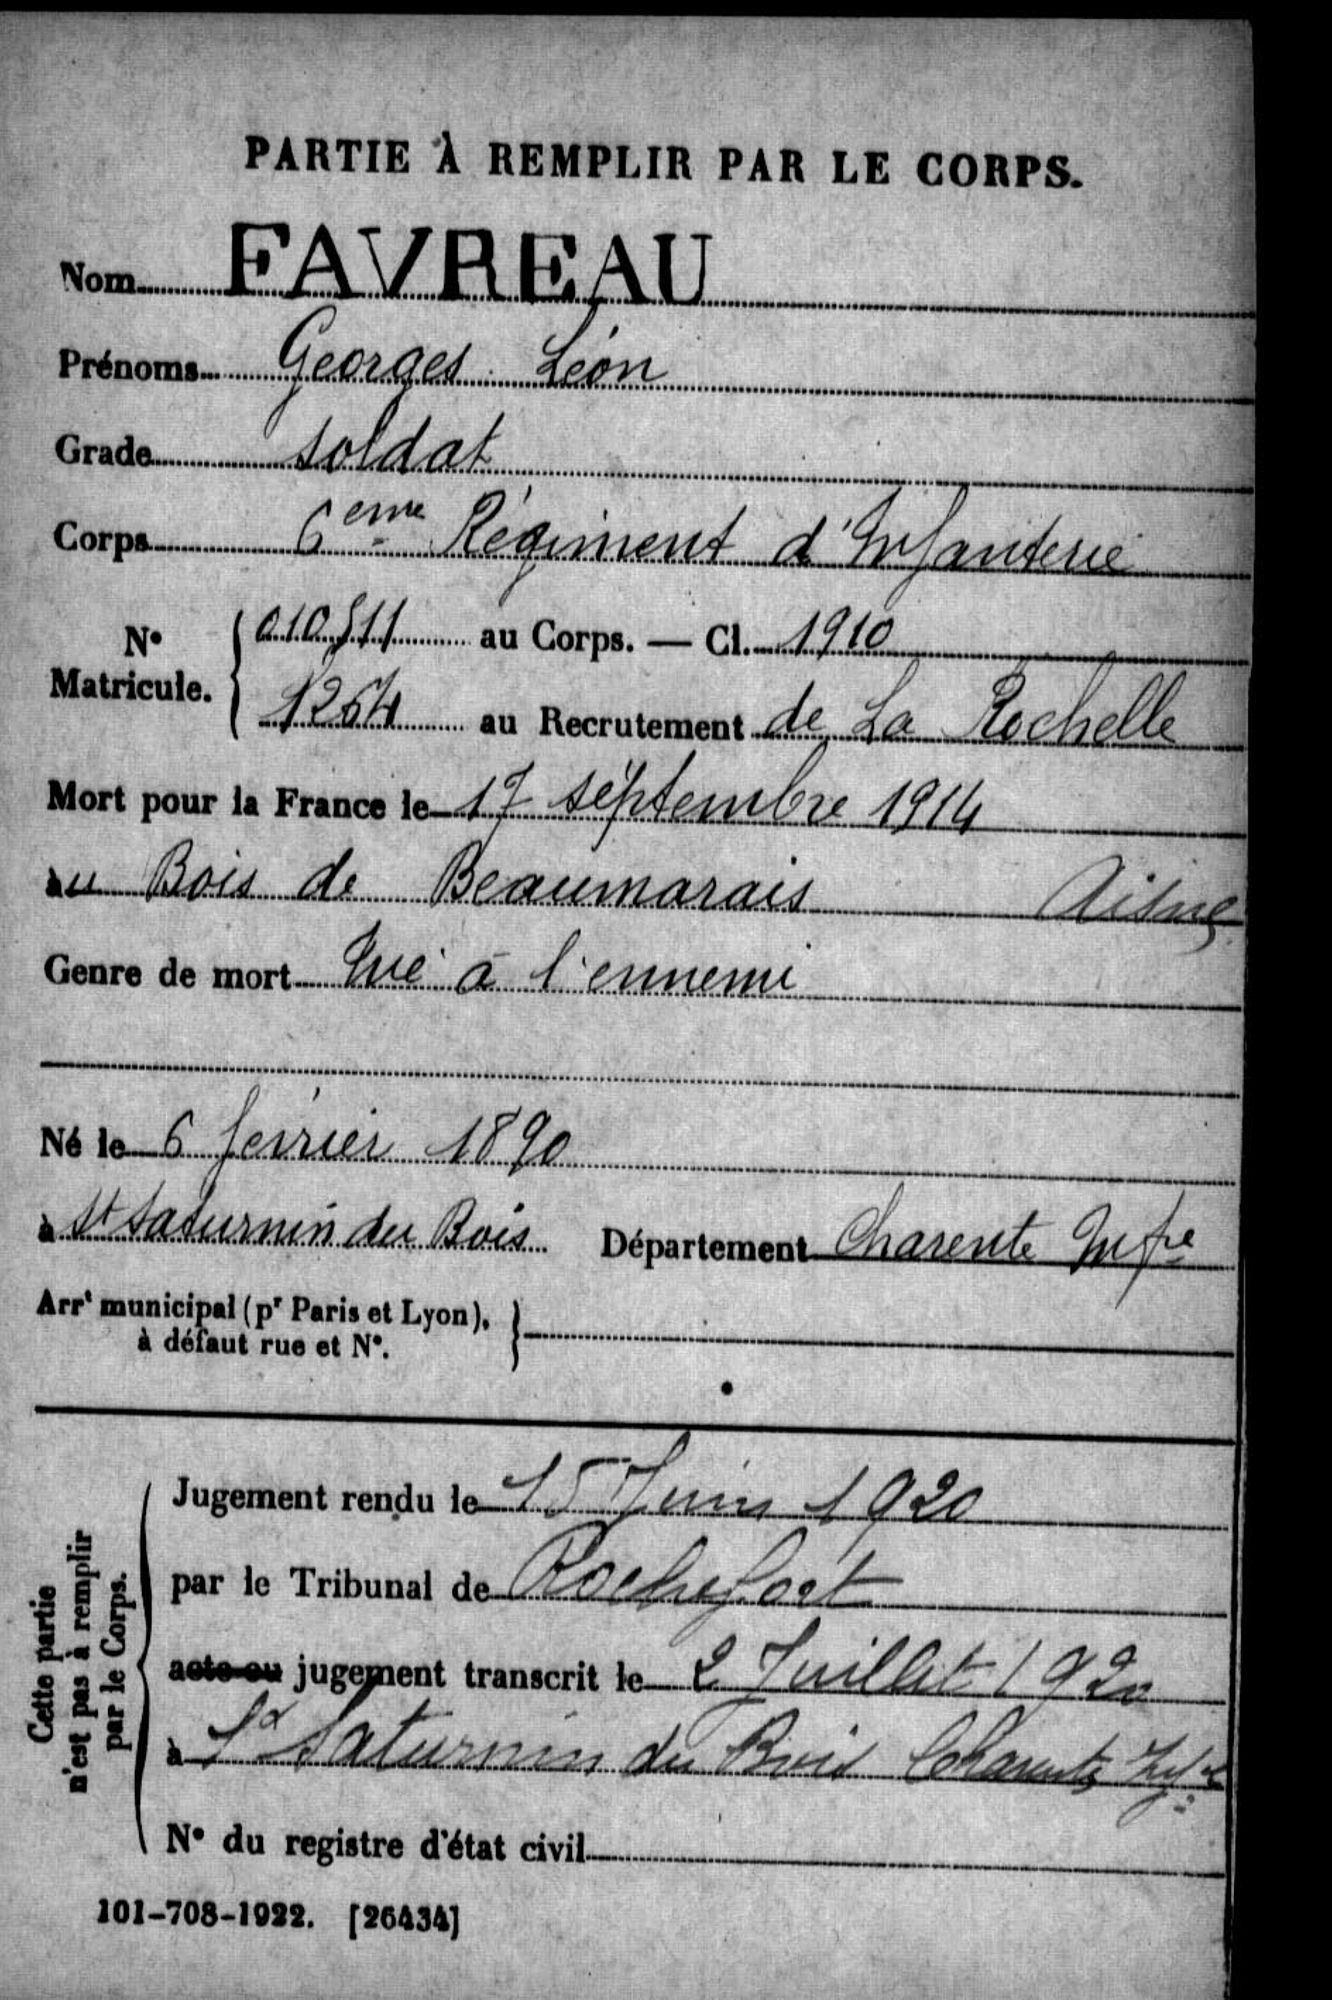 PARTIE À REMPLIR PAR LE CORPS.
Nom FAVREAU
Prénoms Georges Léon
Grade soldat
Corps 6eme Régiment d'Infanterie
N° Matricule. 010511 au Corps. — Cl. 1910
1264 au Recrutement de La Rochelle
Mort pour la France le 17 septembre 1914
au Bois de Beaumarais Aisne
Genre de mort Tué à l'ennemi
Né le 6 février 1890
à St Saturnin du Bois Département Charente Infre
Arrt municipal (pr Paris et Lyon),
à défaut rue et N°.
Cette partie
n'est pas à remplir
par le Corps.
Jugement rendu le 15 Juin 1920
par le Tribunal de Rochefort
acte ou jugement transcrit le 2 Juillet 1920
à St Saturnin du Bois Charente Infre
N° du registre d'état civil
101-708-1922. [26434]